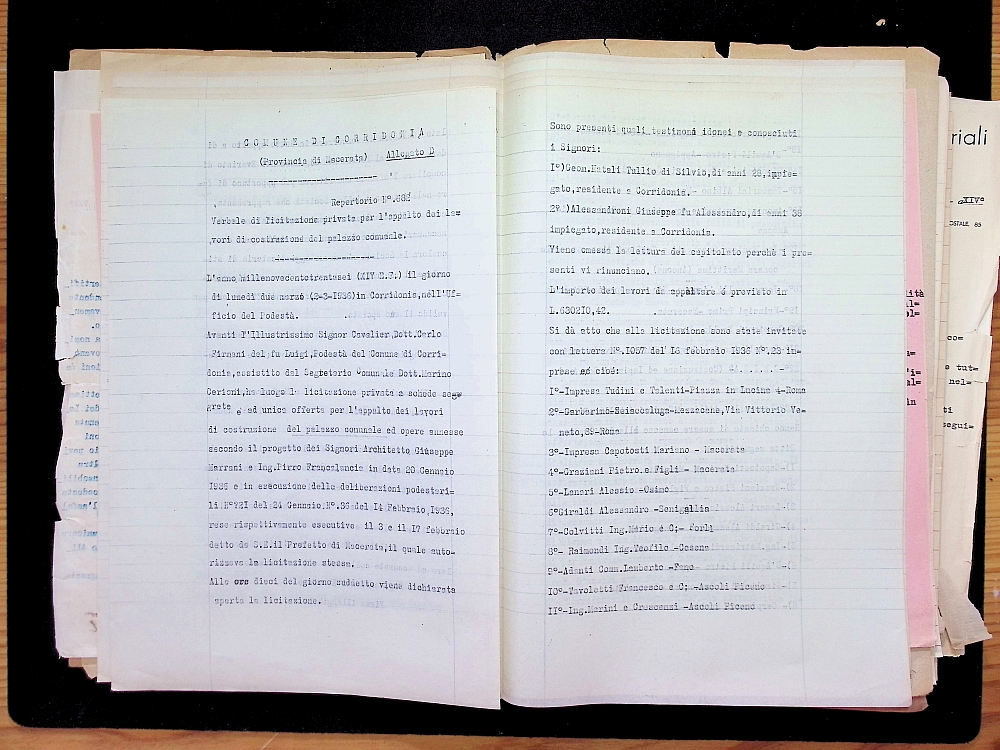 COMUNE DI CORRIDONIA
(Provincia di Macerata) Allegato D
Repertorio N°.682
Verbale di licitazione privata per l'appalto dei la=
vori di costruzione del palazzo comunale.
L'anno millenovecentotrentasei (XIV E.F.) il giorno
di lunedì due marzo (2-3-1936)in Corridonia,nell'Uf=
ficio del Podestà.
Avanti l'Illustrissimo Signor Cavalier,Dott.Carlo
Firmani del fu Luigi,Podestà del Comune di Corri=
donia,assistito dal Segretario Comunale Dott.Marino
Cerioni,ha luogo la licitazione privata a schede seg=
grete e ad unica offerta per l'appalto dei lavori
di costruzione del palazzo comunale ed opere annesse
secondo il progetto dei Signori Architetto Giuseppe
Marrani e Ing.Pirro Francalancia in data 20 Gennaio
1936 e in esecuzione delle deliberazioni podestari=
li N°721 del 24 Gennaio,N°.36 del I4 Febbraio,1936,
rese rispettivamente esecutive il 3 e il I7 febbraio
detto da S.E.il Prefetto di Macerata,il quale auto=
rizzava la licitazione stessa.
Alle ore dieci del giorno suddetto viene dichiarata
aperta la licitazione.
Sono presenti quali testimoni idonei e conosciuti
i Signori:
I°)Geom.Natali Tullio di Silvio,di anni 28,impie=
gato,residente a Corridonia.
2°)Alessandroni Giuseppe fu Alessandro,di anni 38
impiegato,residente a Corridonia.
Viene omessa la lettura del capitolato perchè i pre=
senti vi rinunciano.
L'importo dei lavori da appaltare è previsto in
L.6302I0,42.
Si dà atto che alla licitazione sono state invitate
con lettera N°.I057 del I6 febbraio I936 N°.23 im=
prese ed cioè:
I°-Impresa Tudini e Talenti-Piazza in Lucina 4-Roma
2°-Garbarino-Sciaccaluga-Mezzacane,Via Vittorio Ve=
neto,89-Roma
3°-Impresa Capotosti Mariano - Macerata
4°-Graziani Pietro e Figli- Macerata
5°-Lanari Alessio -Osimo
6°Giraldi Alessandro -Senigallia
7°-Colvitti Ing.Mario e C;- Forlì
8°- Raimondi Ing.Teofilo -Cesena
9°-Adanti Comm.Lamberto -Fano
I0°-Tavoletti Francesco e C; -Ascoli Piceno
II°-Ing.Marini e Crescenzi -Ascoli Piceno
riali
XIV°
OSTALE 85